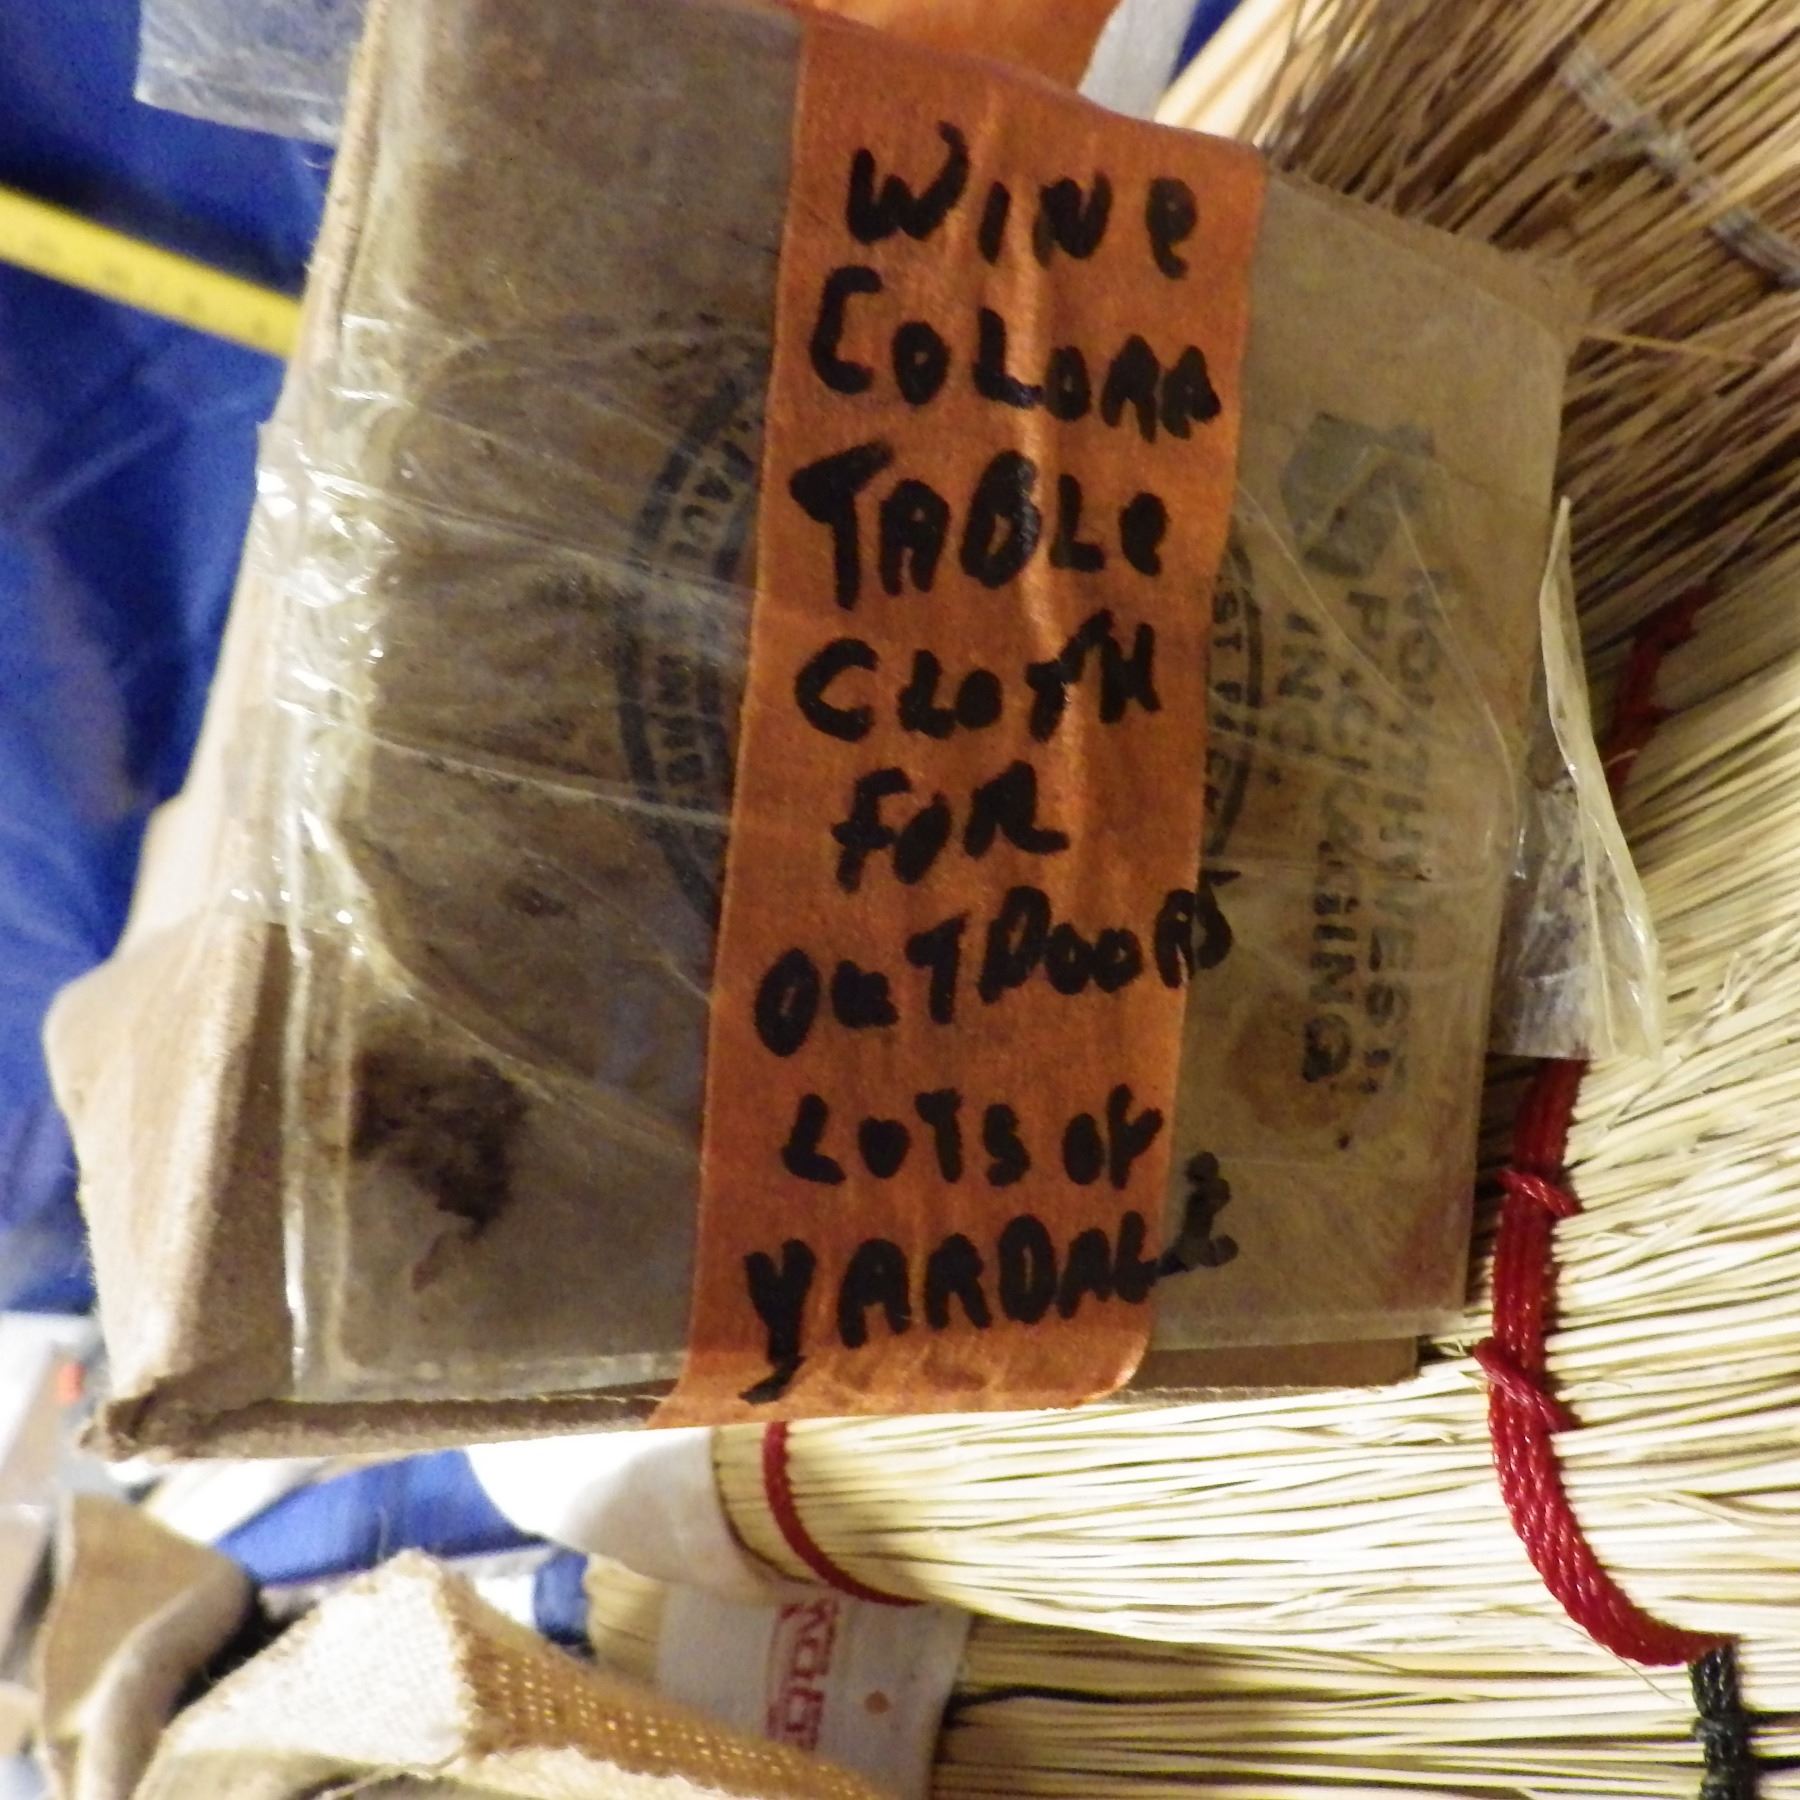 WINe
COLORR
TABLe
CLOTH
FOR
OUTDOORS
LOTS OF
YARDAGE
NORTHWEST
PACKAGING
INC.